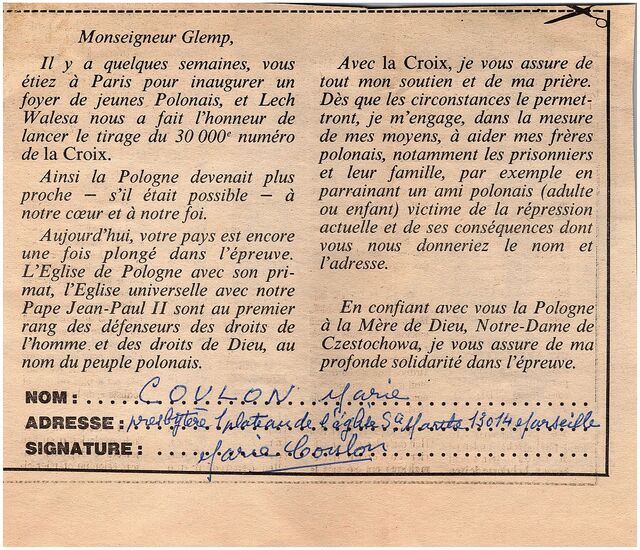 Monseigneur Glemp,
Il y a quelques semaines, vous
étiez à Paris pour inaugurer un
foyer de jeunes Polonais, et Lech
Walesa nous a fait l'honneur de
lancer le tirage du 30 000e numéro
de la Croix.
Ainsi la Pologne devenait plus
proche — s'il était possible — à
notre cœur et à notre foi.
Aujourd'hui, votre pays est encore
une fois plongé dans l'épreuve.
L'Eglise de Pologne avec son pri-
mat, l'Eglise universelle avec notre
Pape Jean-Paul II sont au premier
rang des défenseurs des droits de
l'homme et des droits de Dieu, au
nom du peuple polonais.
Avec la Croix, je vous assure de
tout mon soutien et de ma prière.
Dès que les circonstances le permet-
tront, je m'engage, dans la mesure
de mes moyens, à aider mes frères
polonais, notamment les prisonniers
et leur famille, par exemple en
parrainant un ami polonais (adulte
ou enfant) victime de la répression
actuelle et de ses conséquences dont
vous nous donneriez le nom et
l'adresse.
En confiant avec vous la Pologne
à la Mère de Dieu, Notre-Dame de
Czestochowa, je vous assure de ma
profonde solidarité dans l'épreuve.
NOM: COULON Marie
ADRESSE: presbytère 1 plateau de l'église Ste Marthe 13014 Marseille
SIGNATURE: Marie Coulon